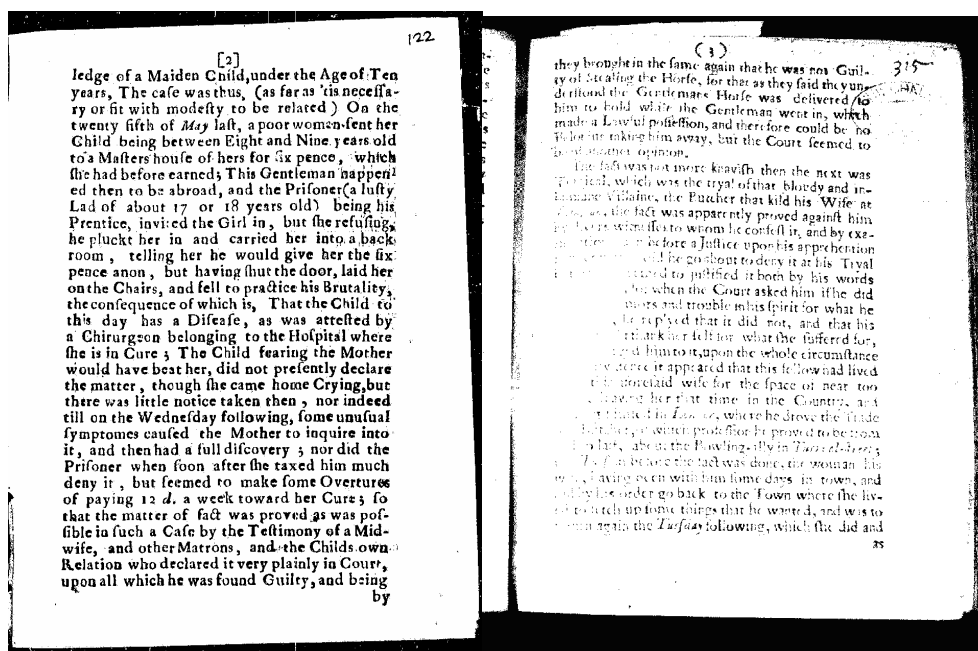 122
[2]
ledge of a Maiden Child,under the Age of Ten
years, The caſe was thus, (as far as 'tis neceſſa-
ry or fit with modeſty to be related) On the
twenty fifth of May laſt, a poor woman ſent her
Child being between Eight and Nine years old
to a Maſters houſe of hers for ſix pence, which
ſhe had before earned; This Gentleman happen
ed then to be abroad, and the Priſoner(a luſty
Lad of about 17 or 18 years old) being his
Prentice, invited the Girl in, but ſhe refuſing,
he pluckt her in and carried her into a back
room, telling her he would give her the ſix
pence anon, but having ſhut the door, laid her
on the Chairs, and fell to practice his Brutality,
the conſequence of which is, That the Child to
this day has a Diſeaſe, as was atteſted by
a Chirurgeon belonging to the Hoſpital where
ſhe is in Cure ; The Child fearing the Mother
would have beat her, did not preſently declare
the matter, though ſhe came home Crying,but
there was little notice taken then, nor indeed
till on the Wedneſday following, ſome unuſual
ſymptomes cauſed the Mother to inquire into
it, and then had a full diſcovery ; nor did the
Priſoner when ſoon after ſhe taxed him much
deny it, but ſeemed to make ſome Overtures
of paying 12 d. a week toward her Cure; ſo
that the matter of fact was proved as was poſ-
ſible in ſuch a Caſe by the Teſtimony of a Mid-
wife, and other Matrons, and the Childs own
Relation who declared it very plainly in Court,
upon all which he was found Guilty, and being
by
315
(3)
they brought in the ſame again that he was not Guil-
ty of Stealing the Horſe, for that as they ſaid they un-
derſtood the Gentlemans Horſe was delivered to
him to hold while the Gentleman went in, which
made a Lawful poſſeſſion, and therefore could be no
taking him away, but the Court ſeemed to
be of another opinion.
The fact was not more knaviſh then the next was
which was the tryal of that bloudy and in-
Villaine, the Butcher that kild his Wife at
the fact was apparently proved againſt him
by witneſſes to whom he confeſt it, and by exa-
before a Juſtice upon his apprehention
he go about to deny it at his Tryal
to juſtified it both by his words
when the Court asked him if he did
and trouble in his ſpirit for what he
replyed that it did not, and that his
thank her ſelf for what ſhe ſuffered for,
him to it,upon the whole circumſtance
it appeared that this fellow had lived
wife for the ſpace of near too
her that time in the Country, and
in where he drove the Trade
of which profeſſion he proved to be from
laſt, about the Bowling-ally in
before the fact was done, the woman his
having been with him ſome days in town, and
by his order go back to the Town where ſhe liv-
to fetch up ſome things that he wanted, and was to
again the Tueſday following, which ſhe did and
as